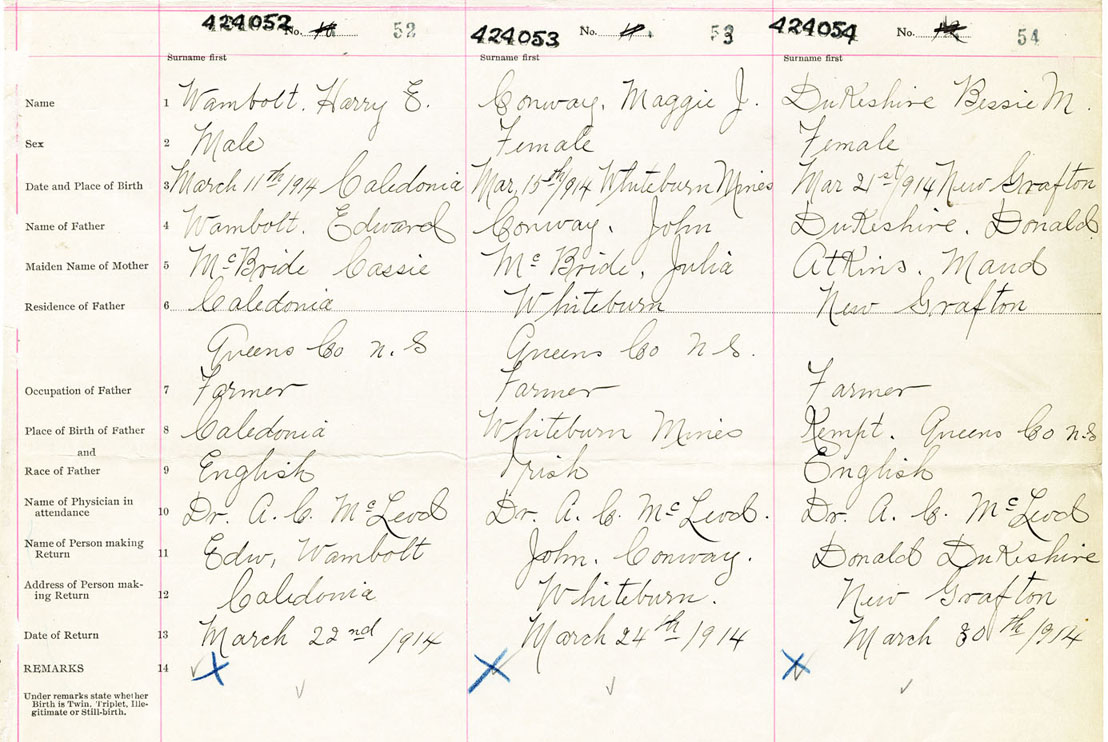 424052 No. 52 424053 No. 53 424054 No. 54
Surname first Surname first Surname first
Name 1 Wambolt. Harry E. Conway, Maggie J. DuKeshire Bessie M.
Sex 2 Male Female Female
Date and Place of Birth 3 March 11th/1914 Caledonia Mar, 15th/914 Whiteburn Mines Mar 21st/914 New Grafton
Name of Father 4 Wambolt. Edward Conway. John DuKeshire. Donald
Maiden Name of Mother 5 McBride Cassie Mc Bride, Julia AtKins. Maud
Residence of Father 6 Caledonia Whiteburn New Grafton
Queens Co N. S Queens Co N S.
Occupation of Father 7 Farmer Farmer Farmer
Place of Birth of Father 8 Caledonia Whiteburn Mines Kempt. Queens Co N.S
and
Race of Father 9 English Irish English
Name of Physician in
attendance 10 Dr. A. C. McLeod Dr. A. C. McLeod. Dr. A. C. McLeod
Name of Person making
Return 11 Edw, Wambolt John. Conway. Donald DuKeshire
Address of Person mak-
ing Return 12 Caledonia Whiteburn. New Grafton
Date of Return 13 March 22nd/1914 March 24th/1914 March 30th/1914
REMARKS 14
Under remarks state whether
Birth is Twin, Triplet, Ille-
gitimate or Still-birth.